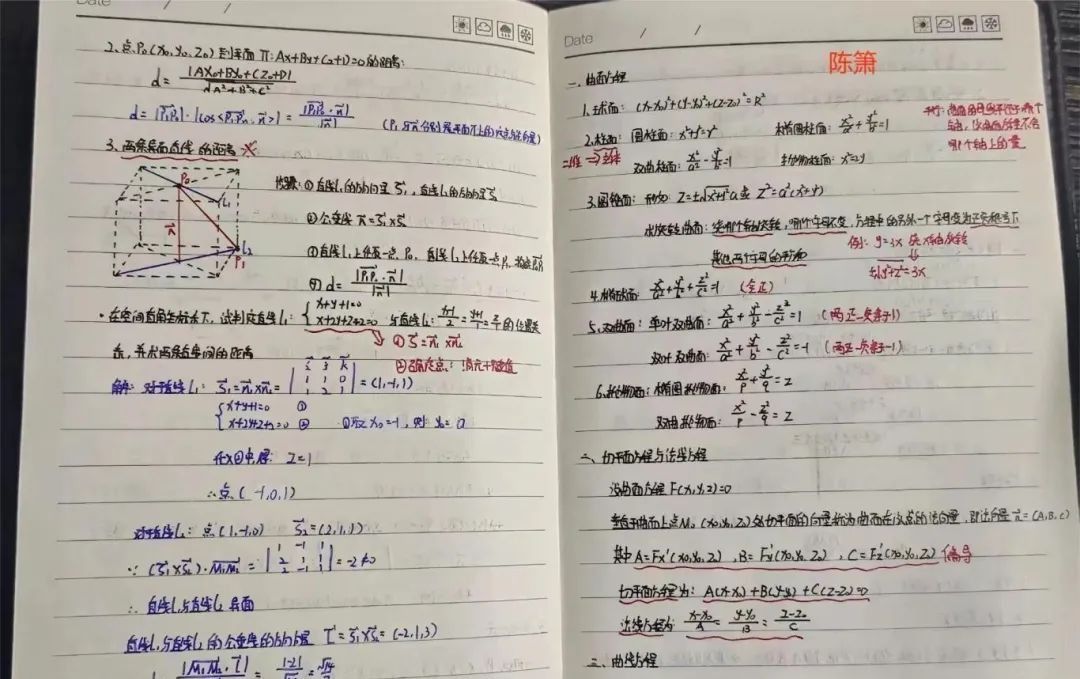 Date / /
2、点P₀(x₀,y₀,z₀)到平面π:Ax+By+Cz+D=0的距离:
d=|Ax₀+By₀+Cz₀+D|/√A²+B²+C²
d=|P₁P₀|·|cos<P₁P₀,n>|=|P₁P₀·n|/|n|
3、两条异面直线的距离
P₀
L₁
n
L₂
P₁
步骤:①直线l₁的方向向量S₁,直线l₂的方向向量S₂
②公垂线n=S₁×S₂
③直线l₁上任取一点P₀,直线l₂上任取一点P₁,构成P₀P₁
④d=|P₀P₁·n|/|n|
·在空间直角坐标系下,试判定直线l₁:{x+y+1=0
x+2y+z+2=0
的位置关
系,并求两条直线间的距离
①S=n₁×n₂
②确定点:
解:对于直线l₁:S₁=n₁×n₂=|i j k 1 1 0 1 2 1|=(1,-1,1)
{x+y+1=0 ①
x+2y+z+2=0 ②
①取x₀=-1,则y₀=0
代入②中,得:z=1
∴点(-1,0,1)
对于直线l₂:点(1,-1,0) S₂=(2,1,1)
∵(S₁×S₂)·M₁M₂=
=-2≠0
∴直线l₁与直线l₂异面
直线l₁与直线l₂的公垂线的方向向量 T=S₁×S₂=(-2,1,3)
|M₁M₂·T|
Date / /
陈箫
一、曲面方程
1、球面:(x-x₀)²+(y-y₀)²+(z-z₀)²=R²
2、柱面:圆柱面:x²+y²=r² 椭圆柱面:x²/a²+y²/b²=1
二维→三维
双曲柱面:x²/a²-y²/b²=1 抛物柱面:x²=2y
哪个轴上的量
3、圆锥面:形如
求旋转曲面:绕哪个轴旋转,哪个字母不变,方程中的另外一个字母变为正负根号下
其他两个字母的平方和
例:y=3x 绕x轴旋转
±√y²+z²=3x
4、椭球面:x²/a²+y²/b²+z²/c²=1 (全正)
5、双曲面:单叶双曲面:x²/a²+y²/b²-z²/c²=1 (两正一负等于1)
双叶双曲面:x²/a²+y²/b²-z²/c²=-1 (两正一负等于-1)
6、抛物面:椭圆抛物面:x²/p+y²/q=z
双曲抛物面:x²/p-z²/q=z
二、切平面方程与法线方程
设曲面方程F(x,y,z)=0
垂直于曲面上点M₀(x₀,y₀,z₀)处切平面的向量称为曲面在该点的法向量,即法向量n=(A,B,C)
其中A=Fx'(x₀,y₀,z₀),B=Fy'(x₀,y₀,z₀),C=Fz'(x₀,y₀,z₀) 偏导
切平面方程为:A(x-x₀)+B(y-y₀)+C(z-z₀)=0
法线方程为:x-x₀/A=y-y₀/B=z-z₀/C
三、曲线方程